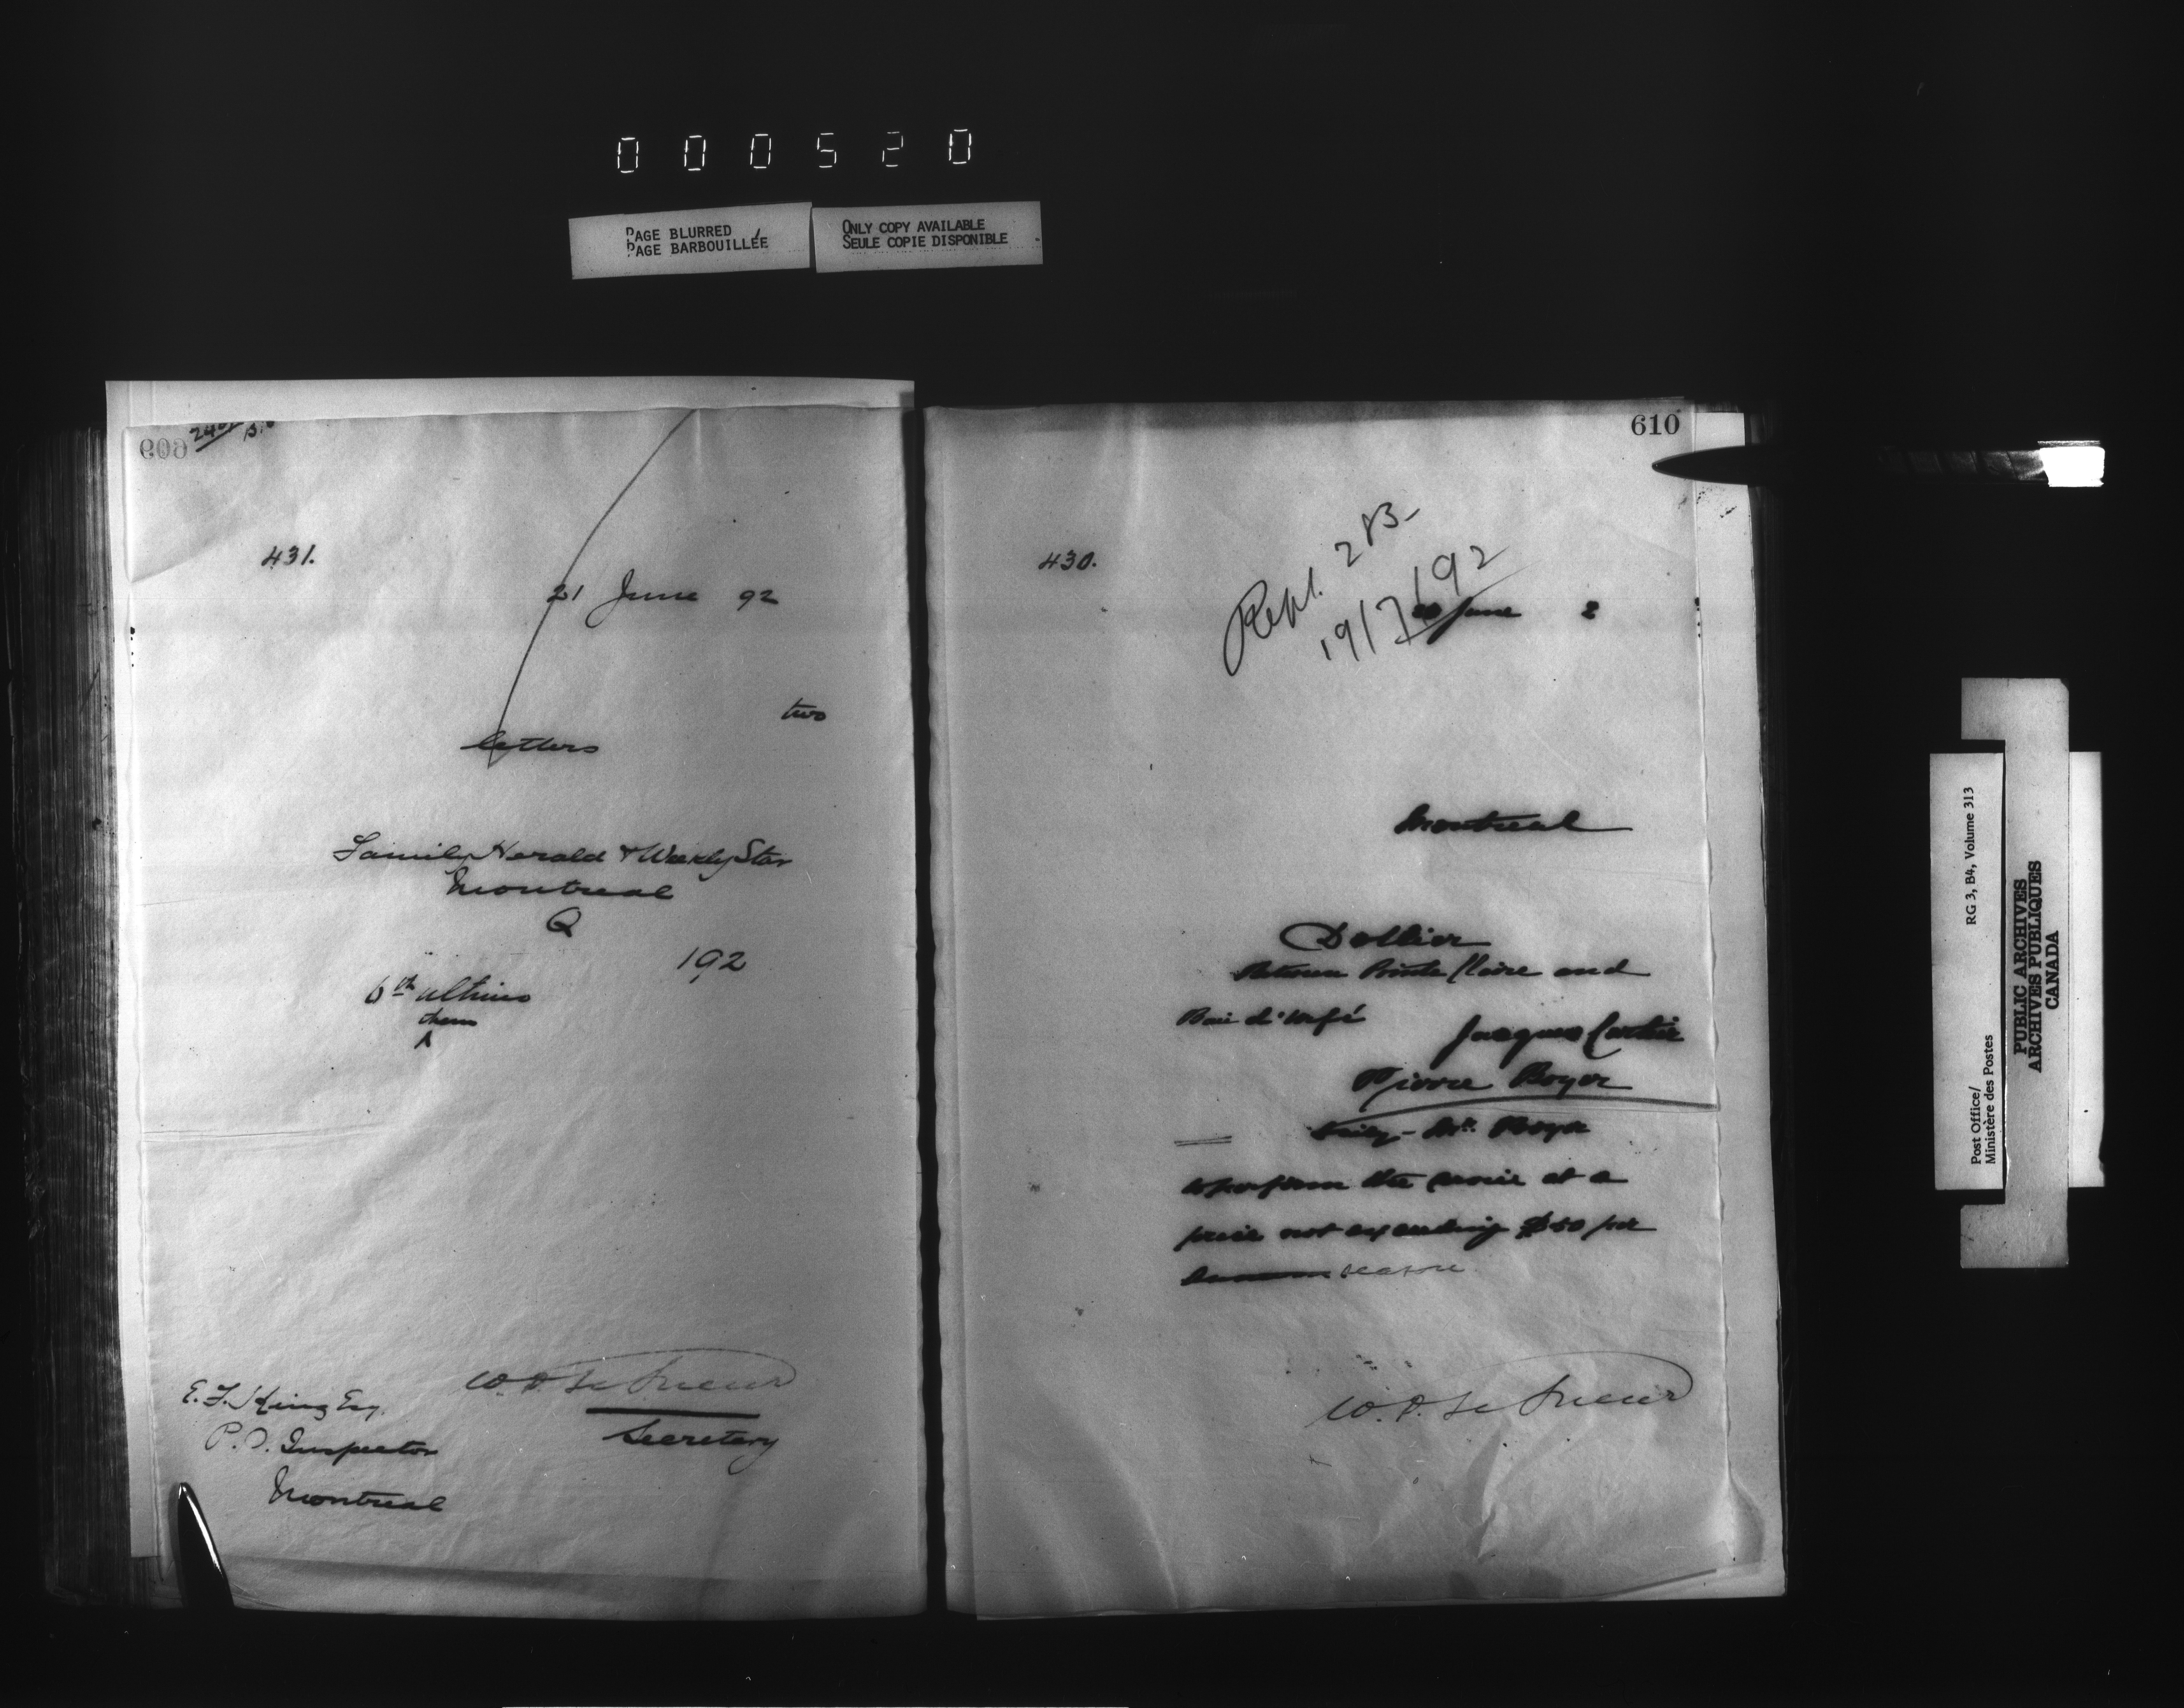 000520
PAGE BLURRED
PAGE BARBOUILLÉE
ONLY COPY AVAILABLE
SEULE COPIE DISPONIBLE
609
431.
21 June 92
two
letters
Family Herald & Weekly Star
Montreal
Q
192
6th ultimo
them
^
W. D. Le Sueur
Secretary
E. F. King Esq.
P. O. Inspector
Montreal
610
430.
Repl. 283-
19/7/92
June 2
Montreal
Dollier
Between Pointe Claire and
Baie d'Urfé
Jacques Cartier
Pierre Boyer
Mr. Boyer
to perform the service at a
price not exceeding $50 per
annum season
W. D. Le Sueur
Post Office/
Ministère des Postes
RG 3, B4, Volume 313
PUBLIC ARCHIVES
ARCHIVES PUBLIQUES
CANADA